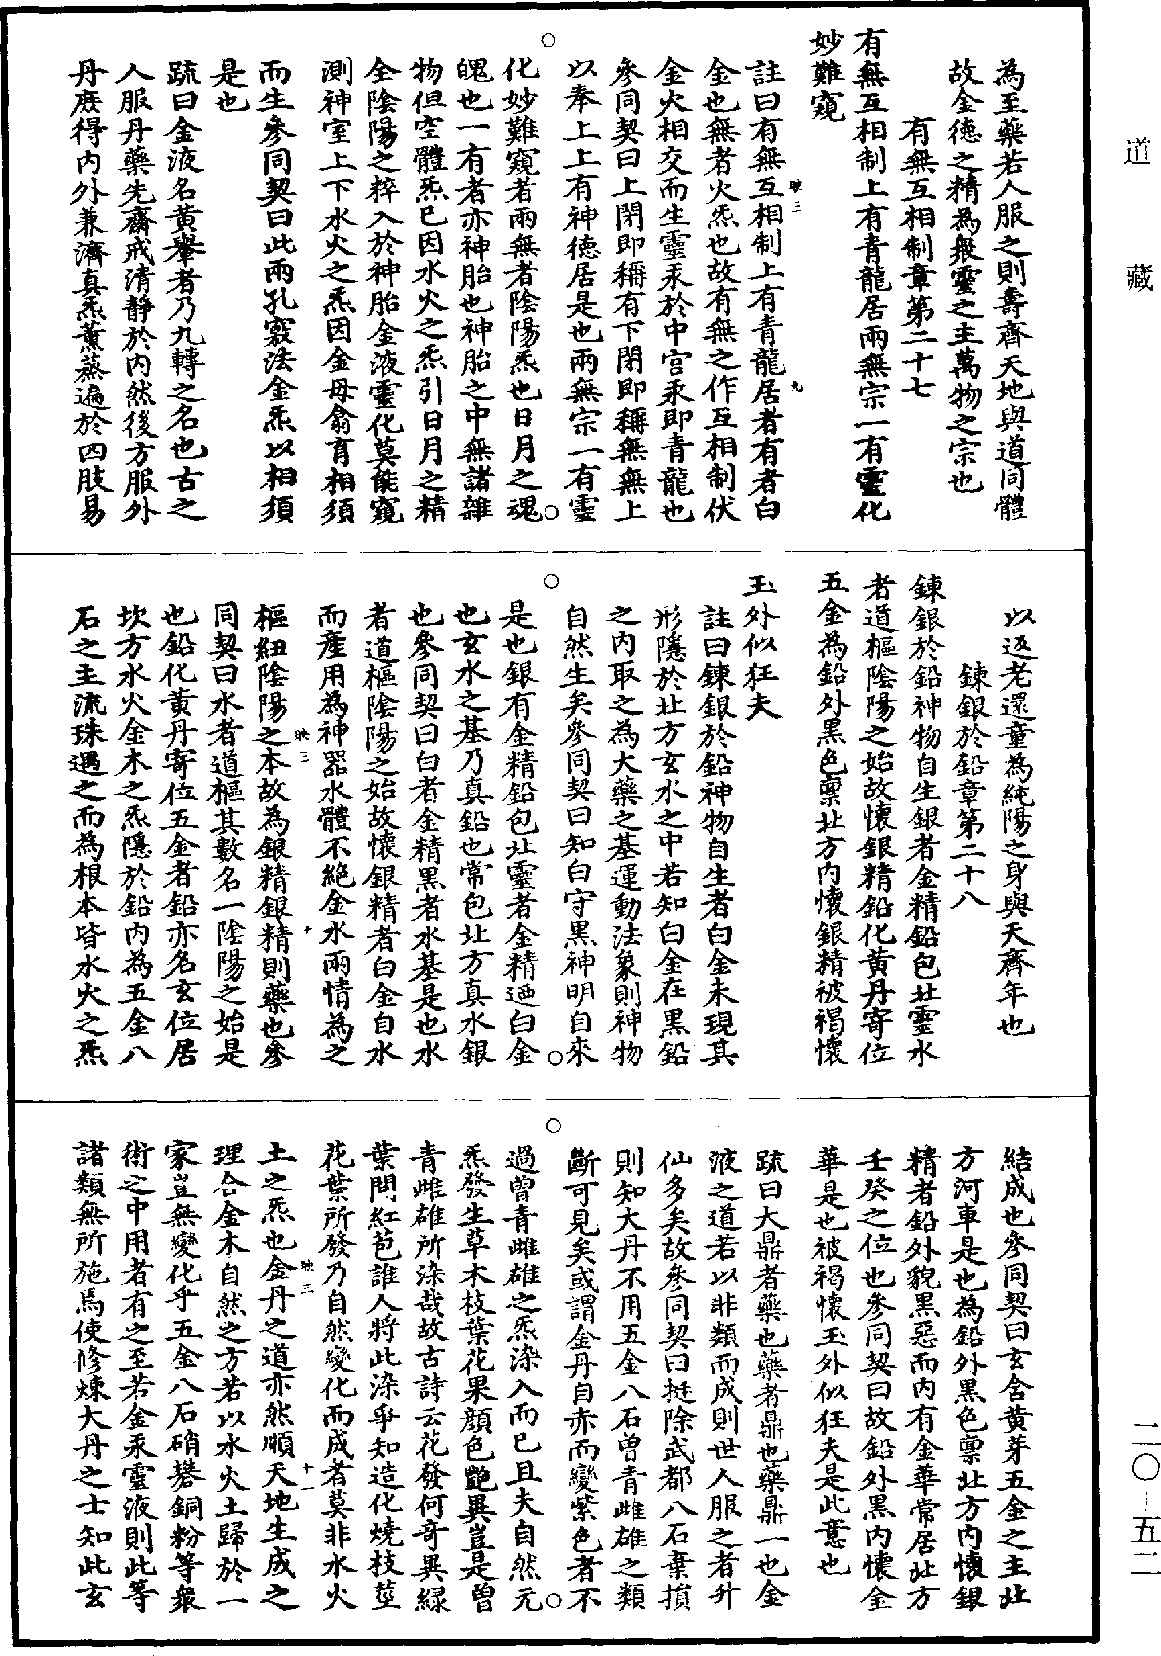 為至藥若人服之則壽齊天地與道同體
故金德之精為衆靈之主萬物之宗也
有無互相制章第二十七
有無互相制上有青龍居兩無宗一有靈化
妙難窺
註曰有無互相制上有青龍居者有者白
金也無者火炁也故有無之作互相制伏
金火相交而生靈汞於中宮汞即青龍也
參同契曰上閉即稱有下閉即稱無無上
以奉上上有神德居是也兩無宗一有靈
化妙難窺者兩無者陰陽炁也日月之魂
魄也一有者亦神胎也神胎之中無諸雜
物但空體炁巳因水火之炁引日月之精
全陰陽之粹入於神胎金液靈化莫能窺
測神室上下水火之炁因金母翕育相須
而生參同契曰此兩孔竅法金炁以相須
是也
疏曰金液名黃轝者乃九轉之名也古之
人服丹藥先齋戒清靜於內然後方服外
丹庻得內外兼濟真炁薰蒸遍於四肢易
以返老還童為純陽之身與天齊年也
鍊銀於鉛章第二十八
鍊銀於鉛神物自生銀者金精鉛包北靈水
者道樞陰陽之始故懷銀精鉛化黃丹寄位
五金為鉛外黑色稟北方內懷銀精被褐懷
玉外似狂夫
註曰鍊銀於鉛神物自生者白金未現其
形隱於北方玄水之中若知白金在黑鉛
之內取之為大藥之基運動法象則神物
自然生矣參同契曰知白守黑神明自來
是也銀有金精鉛包北靈者金精迺白金
也玄水之基乃真鉛也常包北方真水銀
也參同契曰白者金精黑者水基是也水
者道樞陰陽之始故懷銀精者白金自水
而產用為神器水體不絕金水兩情為之
樞紐陰陽之本故為銀精銀精則藥也參
同契曰水者道樞其數名一陰陽之始是
也鉛化黃丹寄位五金者鉛亦名玄位居
坎方水火金木之炁隱於鉛內為五金八
石之主流珠遇之而為根本皆水火之炁
結成也參同契曰玄含黃芽五金之主北
方河車是也為鉛外黑色稟北方內懷銀
精者鉛外貌黑惡而內有金華常居北方
壬癸之位也參同契曰故鉛外黑內懷金
華是也被褐懷玉外似狂夫是此意也
疏曰大鼎者藥也藥者鼎也藥鼎一也金
液之道若以非類而成則世人服之者升
仙多矣故參同契曰挺除武都八石棄損
則知大丹不用五金八石曾青雌雄之類
斷可見矣或謂金丹自赤而變紫色者不
過曾青雌雄之炁染入而巳且夫自然元
炁發生草木枝葉花果顏色艷異豈是曾
青雌雄所染哉故古詩云花發何奇異綠
葉間紅苞誰人將此染爭知造化燒枝莖
花葉所發乃自然變化而成者莫非水火
土之炁也金丹之道亦然順天地生成之
理合金木自然之方若以水火土歸於一
家豈無變化乎五金八石硝礬銅粉等衆
術之中用者有之至若金汞靈液則此等
諸類無所施焉使修煉大丹之士知此玄
映三
九
映三
十
映三
十一
道
藏
二〇—五二